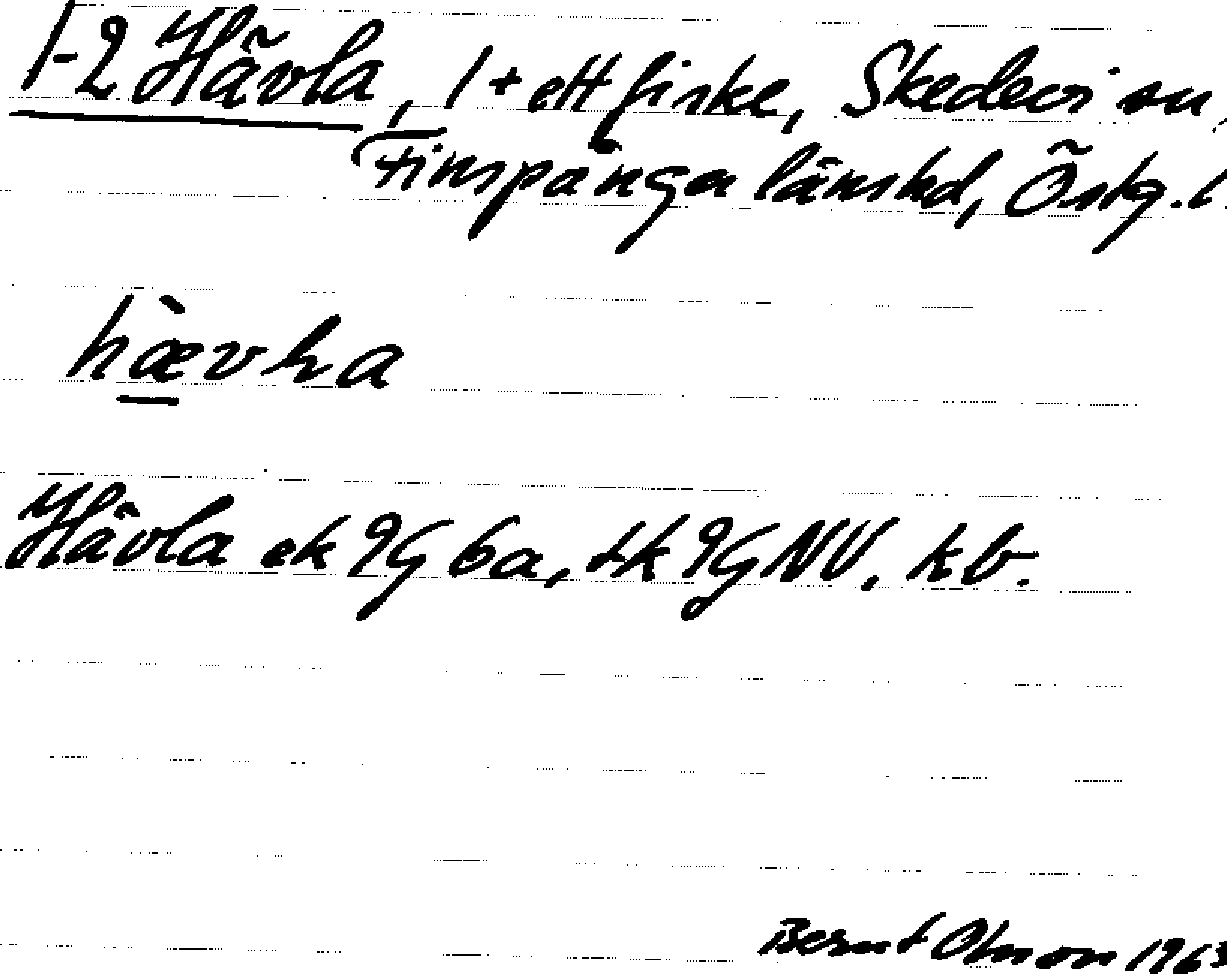 1-2 Hävla, 1 + ett fiske, Skedevi sn,
Finspånga länshd, Östg. l.
hæ̀vla
Hävla ek 9G 6a, tk 9G NV, kb.
Bernt Olsson 1963